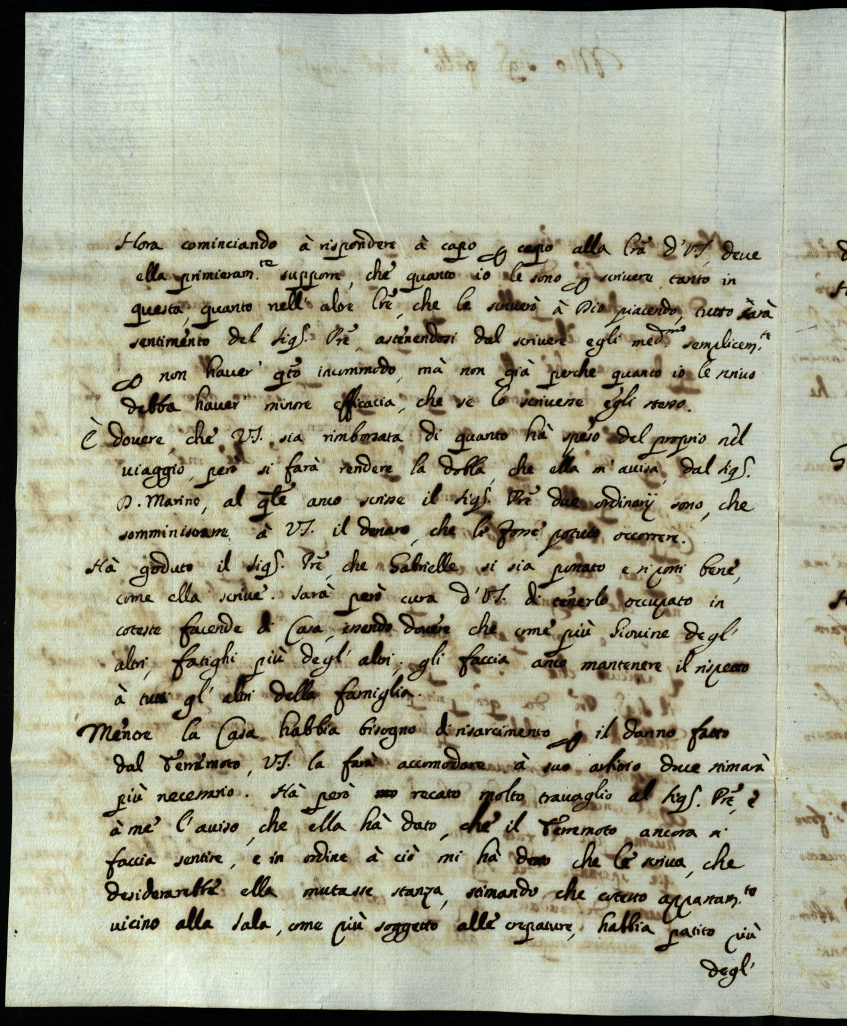 Hora cominciando à rispondere à capo p capo alla lrã d'VS, deve
ella primieram.te supporre, che quanto io le sono p scrivere, tanto in
questa, quanto nell'altre lrẽ, che le scriverò à Dio piacendo, tutto sarà
sentimento del Sigr. Prẽ, astenendosi del scrivere egli med.mo semplicem.te
p non haver' q̃to incommodo, mà non già perche quanto io le scrivo
debba haver' minore efficacia, che se lo scrivesse egli stesso.
È dovere, che VS. sia rimborsata di quanto hà speso del proprio nel
viaggio, però si farà rendere la dobla, che ella m'avisa, dal Sigr.
D. Marino, al q̃le anco scrisse il Sigr. Prẽ due ordinarij sono, che
somministrasse à VS. il denaro, che le fosse potuto occorrere.
Hà goduto il Sigr. Prẽ, che Gabrielle si sia portato e si porti bene,
come ella scrive. Sarà però cura d'VS. di tenerlo occupato in
coteste facende di Casa, essendo dovere che come più Giovine degl'
altri, fatighi più degl'altri; gli faccia anco mantenere il rispetto
à tutti gl'altri della famiglia.
Mentre la Casa habbia bisogno di risarcimento p il danno fatto
dal Terremoto, VS. la farà accomodare à suo arbitrio dove stimarà
più necessario. Hà però recato molto travaglio al Sigr. Prẽ, e
à me l'aviso, che ella hà dato, che il Terremoto ancora si
faccia sentire, e in ordine à ciò mi hà detto che le scriva, che
desiderarebbe ella mutasse stanza, stimando che cotesto appartam.to
vicino alla Sala, come più soggetto alle crepature, habbia patito più
degl'